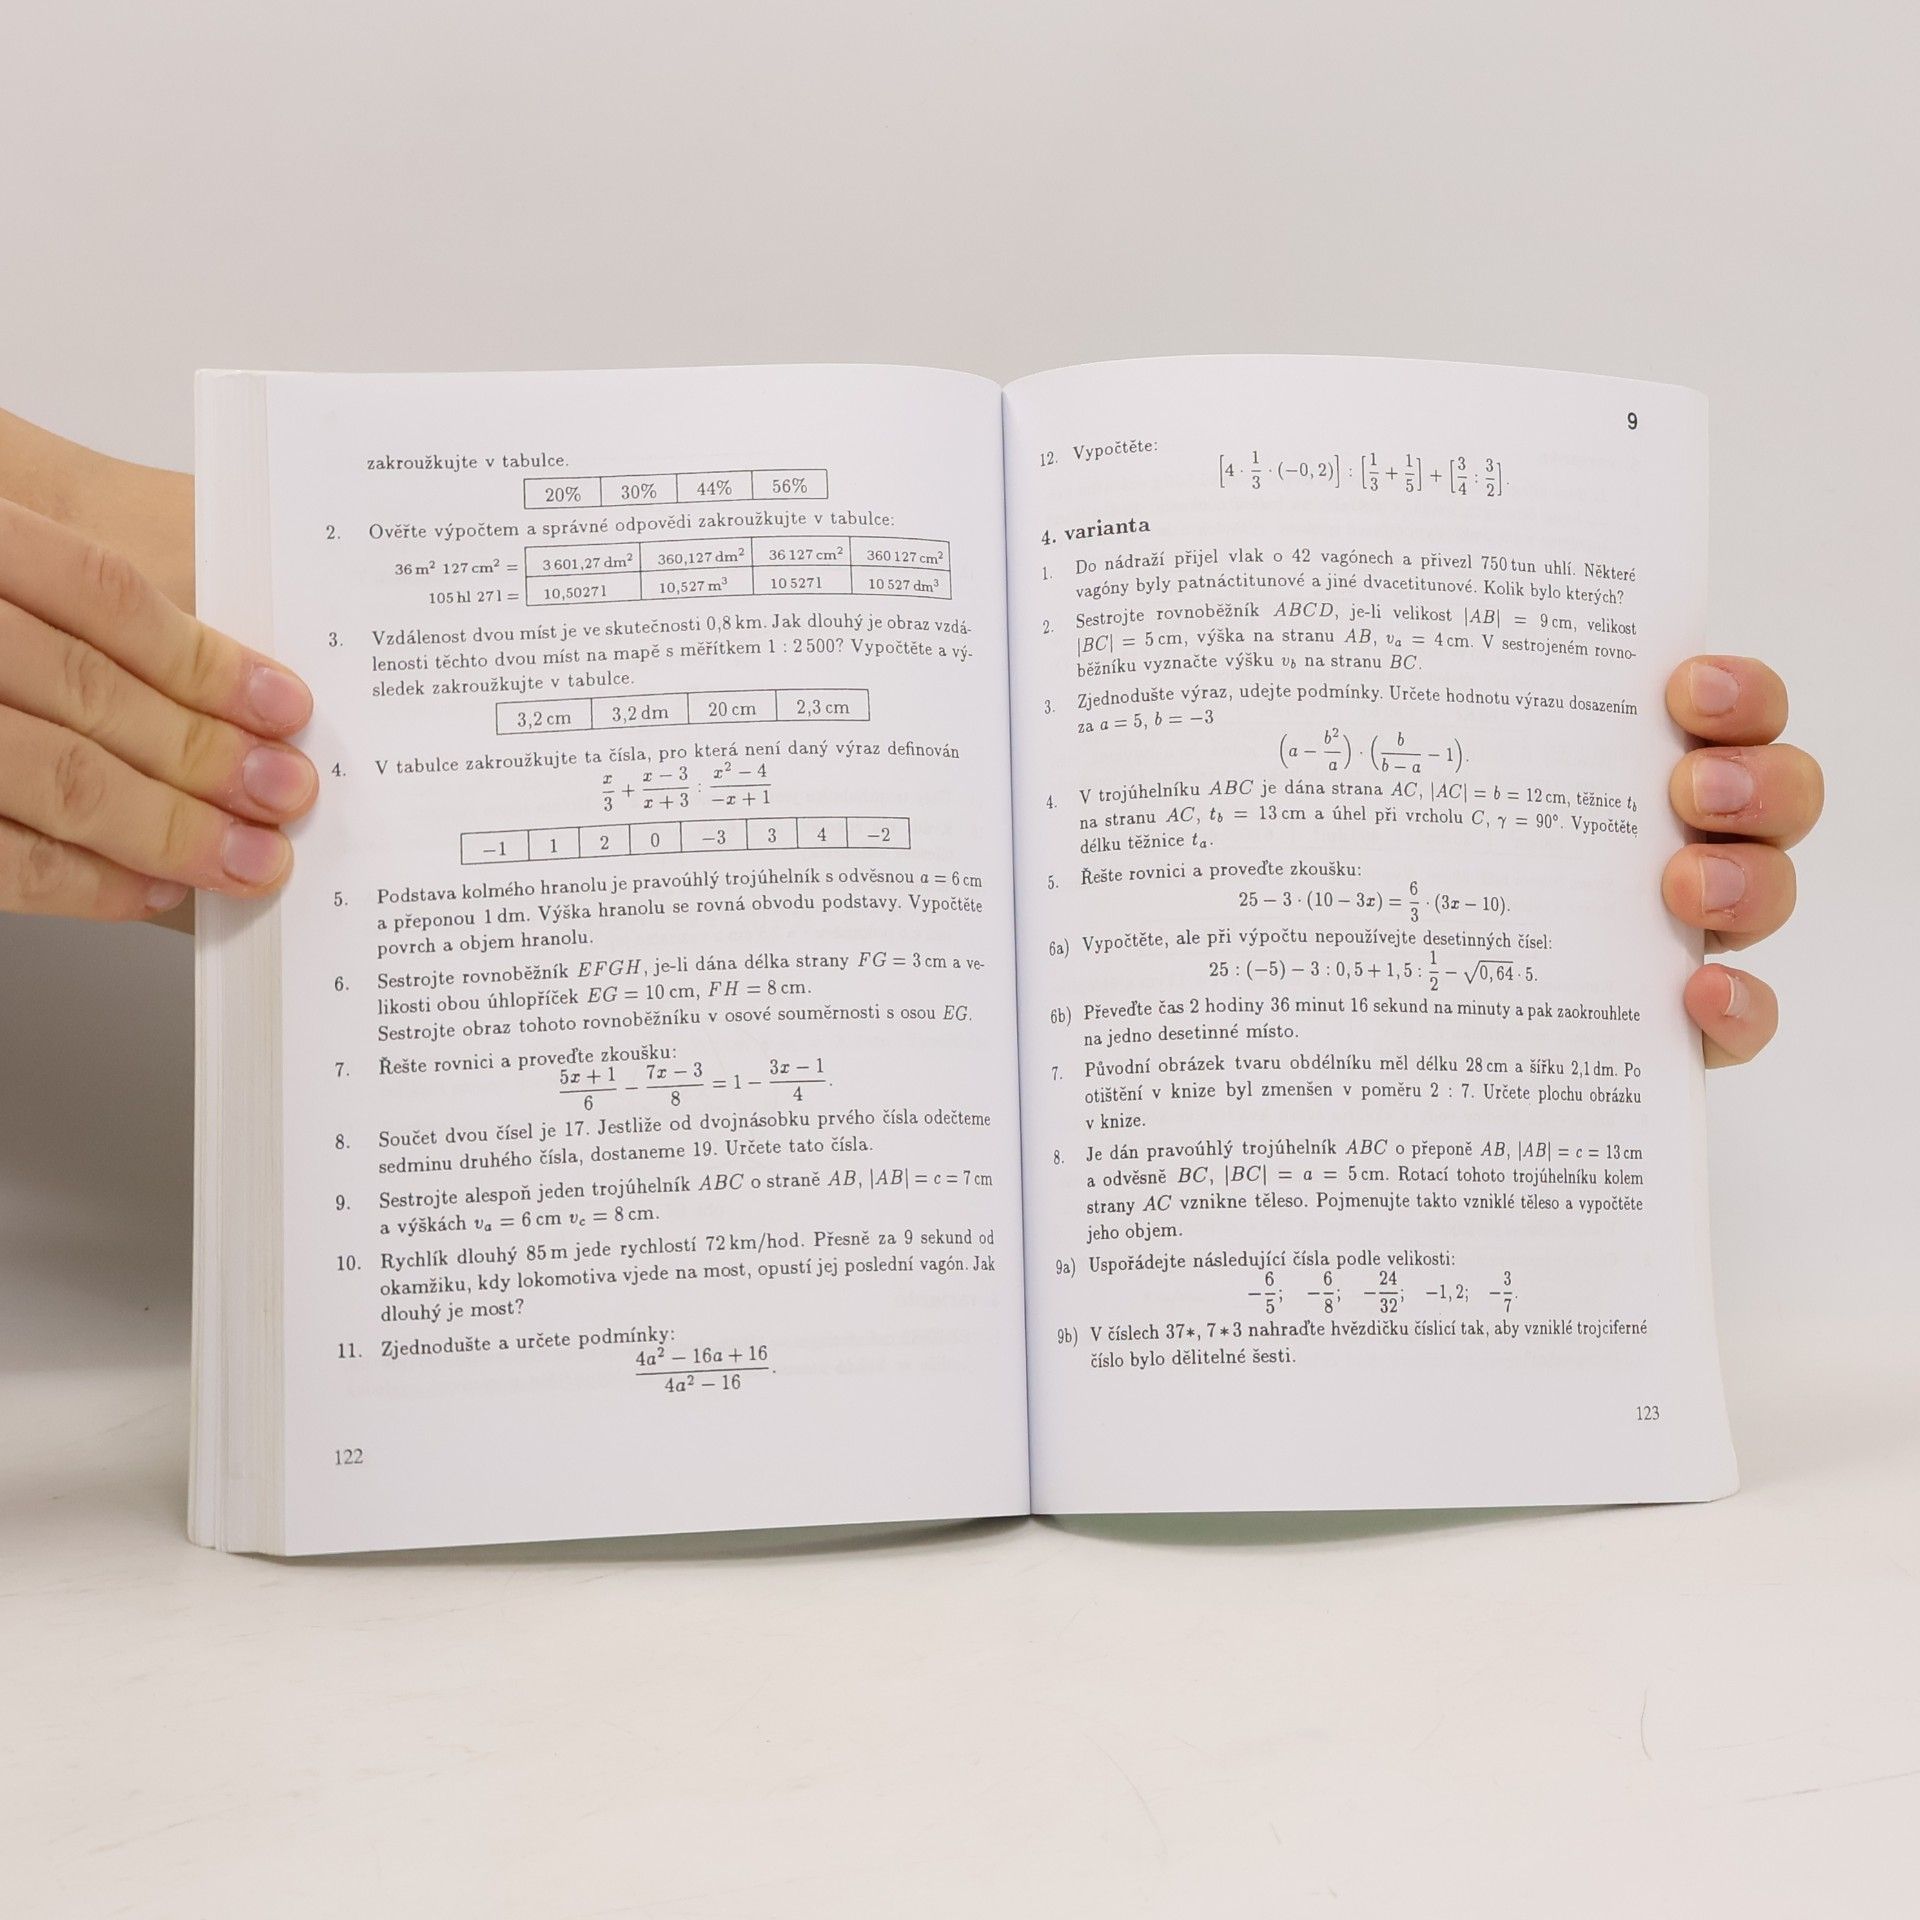 zakroužkujte v tabulce.
20% 30% 44% 56%
2. Ověřte výpočtem a správné odpovědi zakroužkujte v tabulce:
36 m² 127 cm² = 3 601,27 dm² 360,127 dm² 36 127 cm² 360 127 cm²
105 hl 27 l = 10,5027 l 10,527 m³ 10 527 l 10 527 dm³
3. Vzdálenost dvou míst je ve skutečnosti 0,8 km. Jak dlouhý je obraz vzdá-
lenosti těchto dvou míst na mapě s měřítkem 1 : 2 500? Vypočtěte a vý-
sledek zakroužkujte v tabulce.
3,2 cm 3,2 dm 20 cm 2,3 cm
4. V tabulce zakroužkujte ta čísla, pro která není daný výraz definován
x/3 + (x − 3)/(x + 3) : (x² − 4)/(−x + 1)
−1 1 2 0 −3 3 4 −2
5. Podstava kolmého hranolu je pravoúhlý trojúhelník s odvěsnou a = 6 cm
a přeponou 1 dm. Výška hranolu se rovná obvodu podstavy. Vypočtěte
povrch a objem hranolu.
6. Sestrojte rovnoběžník EFGH, je-li dána délka strany FG = 3 cm a ve-
likosti obou úhlopříček EG = 10 cm, FH = 8 cm.
Sestrojte obraz tohoto rovnoběžníku v osové souměrnosti s osou EG.
7. Řešte rovnici a proveďte zkoušku:
(5x + 1)/6 − (7x − 3)/8 = 1 − (3x − 1)/4.
8. Součet dvou čísel je 17. Jestliže od dvojnásobku prvého čísla odečteme
sedminu druhého čísla, dostaneme 19. Určete tato čísla.
9. Sestrojte alespoň jeden trojúhelník ABC o straně AB, |AB| = c = 7 cm
a výškách vₐ = 6 cm v_c = 8 cm.
10. Rychlík dlouhý 85 m jede rychlostí 72 km/hod. Přesně za 9 sekund od
okamžiku, kdy lokomotiva vjede na most, opustí jej poslední vagón. Jak
dlouhý je most?
11. Zjednodušte a určete podmínky:
(4a² − 16a + 16)/(4a² − 16).
122
9
12. Vypočtěte:
[4 · 1/3 · (−0,2)] : [1/3 + 1/5] + [3/4 : 3/2].
4. varianta
1. Do nádraží přijel vlak o 42 vagónech a přivezl 750 tun uhlí. Některé
vagóny byly patnáctitunové a jiné dvacetitunové. Kolik bylo kterých?
2. Sestrojte rovnoběžník ABCD, je-li velikost |AB| = 9 cm, velikost
|BC| = 5 cm, výška na stranu AB, vₐ = 4 cm. V sestrojeném rovno-
běžníku vyznačte výšku v_b na stranu BC.
3. Zjednodušte výraz, udejte podmínky. Určete hodnotu výrazu dosazením
za a = 5, b = −3
(a − b²/a) · (b/(b − a) − 1).
4. V trojúhelníku ABC je dána strana AC, |AC| = b = 12 cm, těžnice t_b
na stranu AC, t_b = 13 cm a úhel při vrcholu C, γ = 90°. Vypočtěte
délku těžnice tₐ.
5. Řešte rovnici a proveďte zkoušku:
25 − 3 · (10 − 3x) = 6/3 · (3x − 10).
6a) Vypočtěte, ale při výpočtu nepoužívejte desetinných čísel:
25 : (−5) − 3 : 0,5 + 1,5 : 1/2 − √0,64 · 5.
6b) Převeďte čas 2 hodiny 36 minut 16 sekund na minuty a pak zaokrouhlete
na jedno desetinné místo.
7. Původní obrázek tvaru obdélníku měl délku 28 cm a šířku 2,1 dm. Po
otištění v knize byl zmenšen v poměru 2 : 7. Určete plochu obrázku
v knize.
8. Je dán pravoúhlý trojúhelník ABC o přeponě AB, |AB| = c = 13 cm
a odvěsně BC, |BC| = a = 5 cm. Rotací tohoto trojúhelníku kolem
strany AC vznikne těleso. Pojmenujte takto vzniklé těleso a vypočtěte
jeho objem.
9a) Uspořádejte následující čísla podle velikosti:
−6/5; −6/8; −24/32; −1,2; −3/7.
9b) V číslech 37∗, 7 ∗ 3 nahraďte hvězdičku číslicí tak, aby vzniklé trojciferné
číslo bylo dělitelné šesti.
123